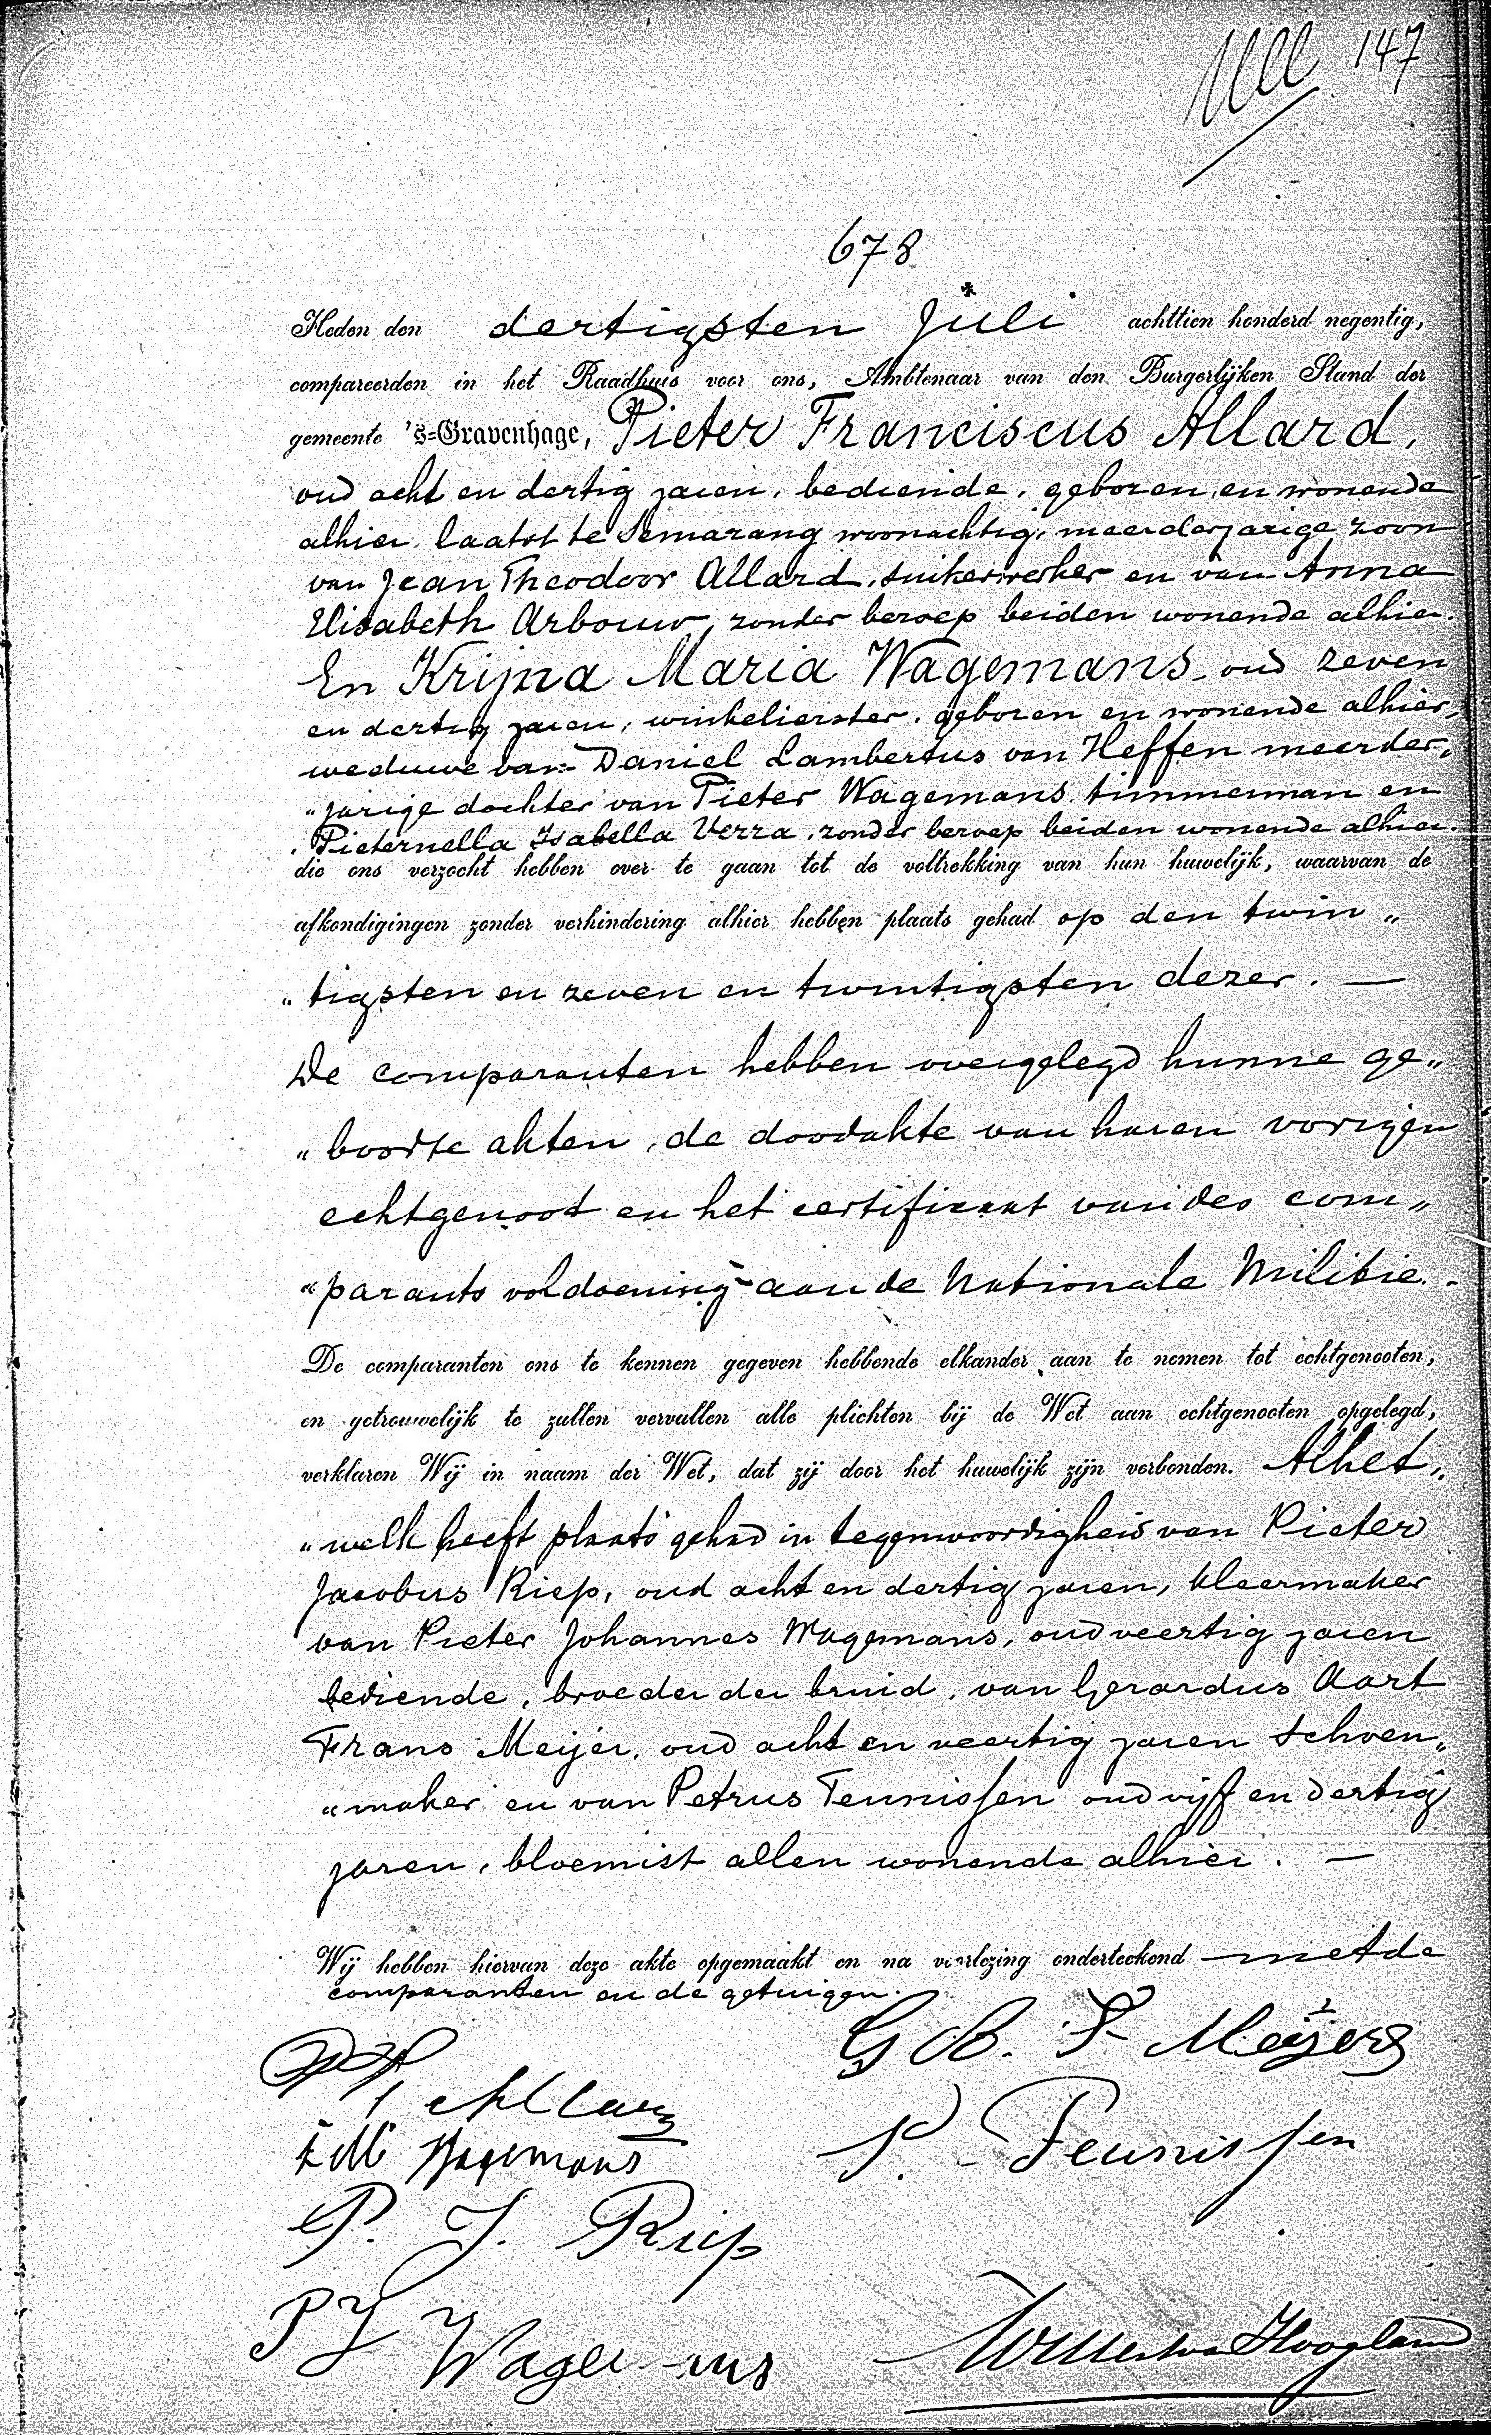 147
678
Heden den dertigsten Juli achttien honderd negentig,
compareerden in het Raadhuis voor ons, Ambtenaar van den Burgerlijken Stand der
gemeente 's=Gravenhage, Pieter Franciscus Allard,
oud acht en dertig jaren, bediende, geboren en wonende
alhier laatst te Semarang woonachtig, meerderjarige zoon
van Jean Theodoor Allard, suikerwerker en van Anna
Elisabeth Arbouw, zonder beroep beiden wonende alhier.
En Krijna Maria Wagemans, oud zeven
en dertig jaren, winkelierster, geboren en wonende alhier,
weduwe van Daniel Lambertus van Heffen meerder„
„jarige dochter van Pieter Wagemans, timmerman en
Pieternella Isabella Verra, zonder beroep beiden wonende alhier.
die ons verzocht hebben over te gaan tot de voltrekking van hun huwelijk, waarvan de
afkondigingen zonder verhindering alhier hebben plaats gehad op den twin„
„tigsten en zeven en twintigsten dezer. —
De comparanten hebben overgelegd hunne ge„
„boorte akten, de doodakte van haren vorigen
echtgenoot en het certificaat van des com„
„parants voldoening aan de Nationale Militie.
De comparanten ons te kennen gegeven hebbende elkander aan te nemen tot echtgenooten,
en getrouwelijk te zullen vervullen alle plichten bij de Wet aan echtgenooten opgelegd,
verklaren Wij in naam der Wet, dat zij door het huwelijk zijn verbonden. Alhet„
„welk heeft plaats gehad in tegenwoordigheid van Pieter
Jacobus Riep, oud acht en dertig jaren, kleermaker
van Pieter Johannes Wagemans, oud veertig jaren
bediende, broeder der bruid, van Gerardus Aart
Frans Meijer, oud acht en veertig jaren schoen„
„maker en van Petrus Teunissen oud vijf en dertig
jaren, bloemist allen wonende alhier. —
Wij hebben hiervan deze akte opgemaakt en na voorlezing onderteekend — met de
comparanten en de getuigen.
Allard
K M Wagemans
P. J. Riep
P J Wagemans
F Meijers
P. Teunissen
Hoogland